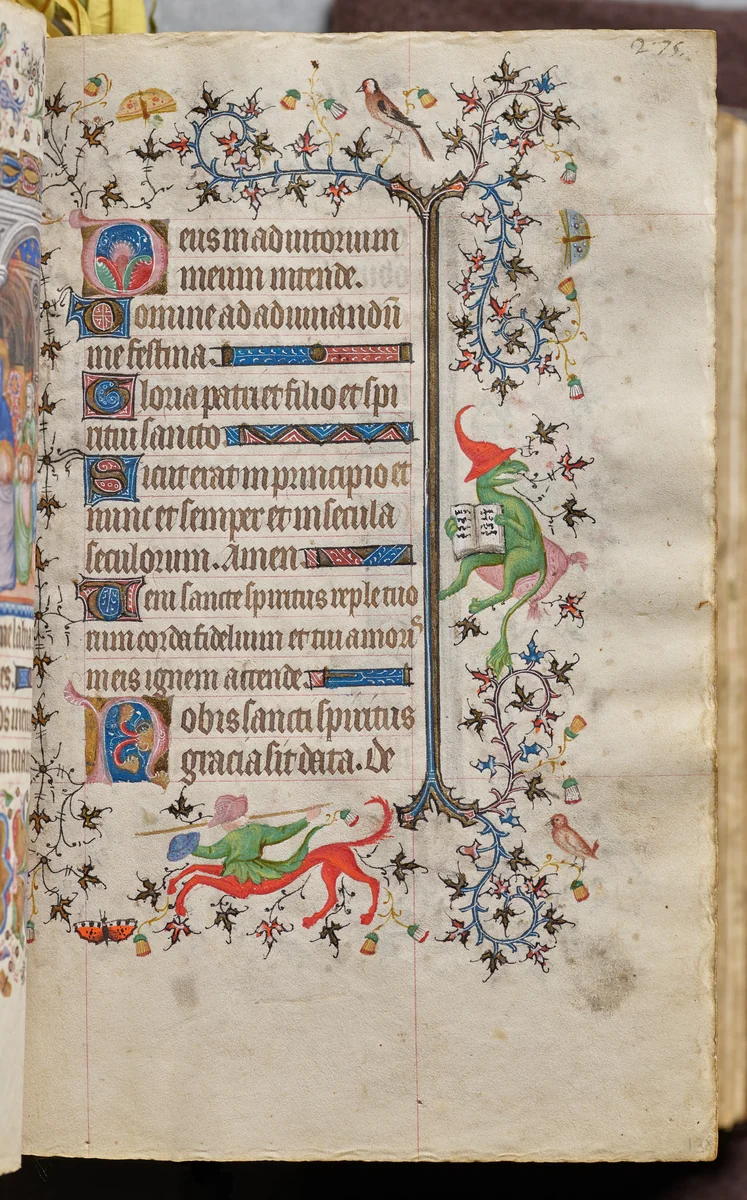 275.
Deus in adiutorium
meum intende.
Domine ad adiuuandū
me festina.
Gloria patri et filio et spi
ritui sancto
Sicut erat in principio et
nunc et semper et in secula
seculorum. Amen
Veni sancte spiritus reple tuo
rum corda fidelium et tui amoris
in eis ignem accende
Nobis sancti spiritus
gracia sit data. De